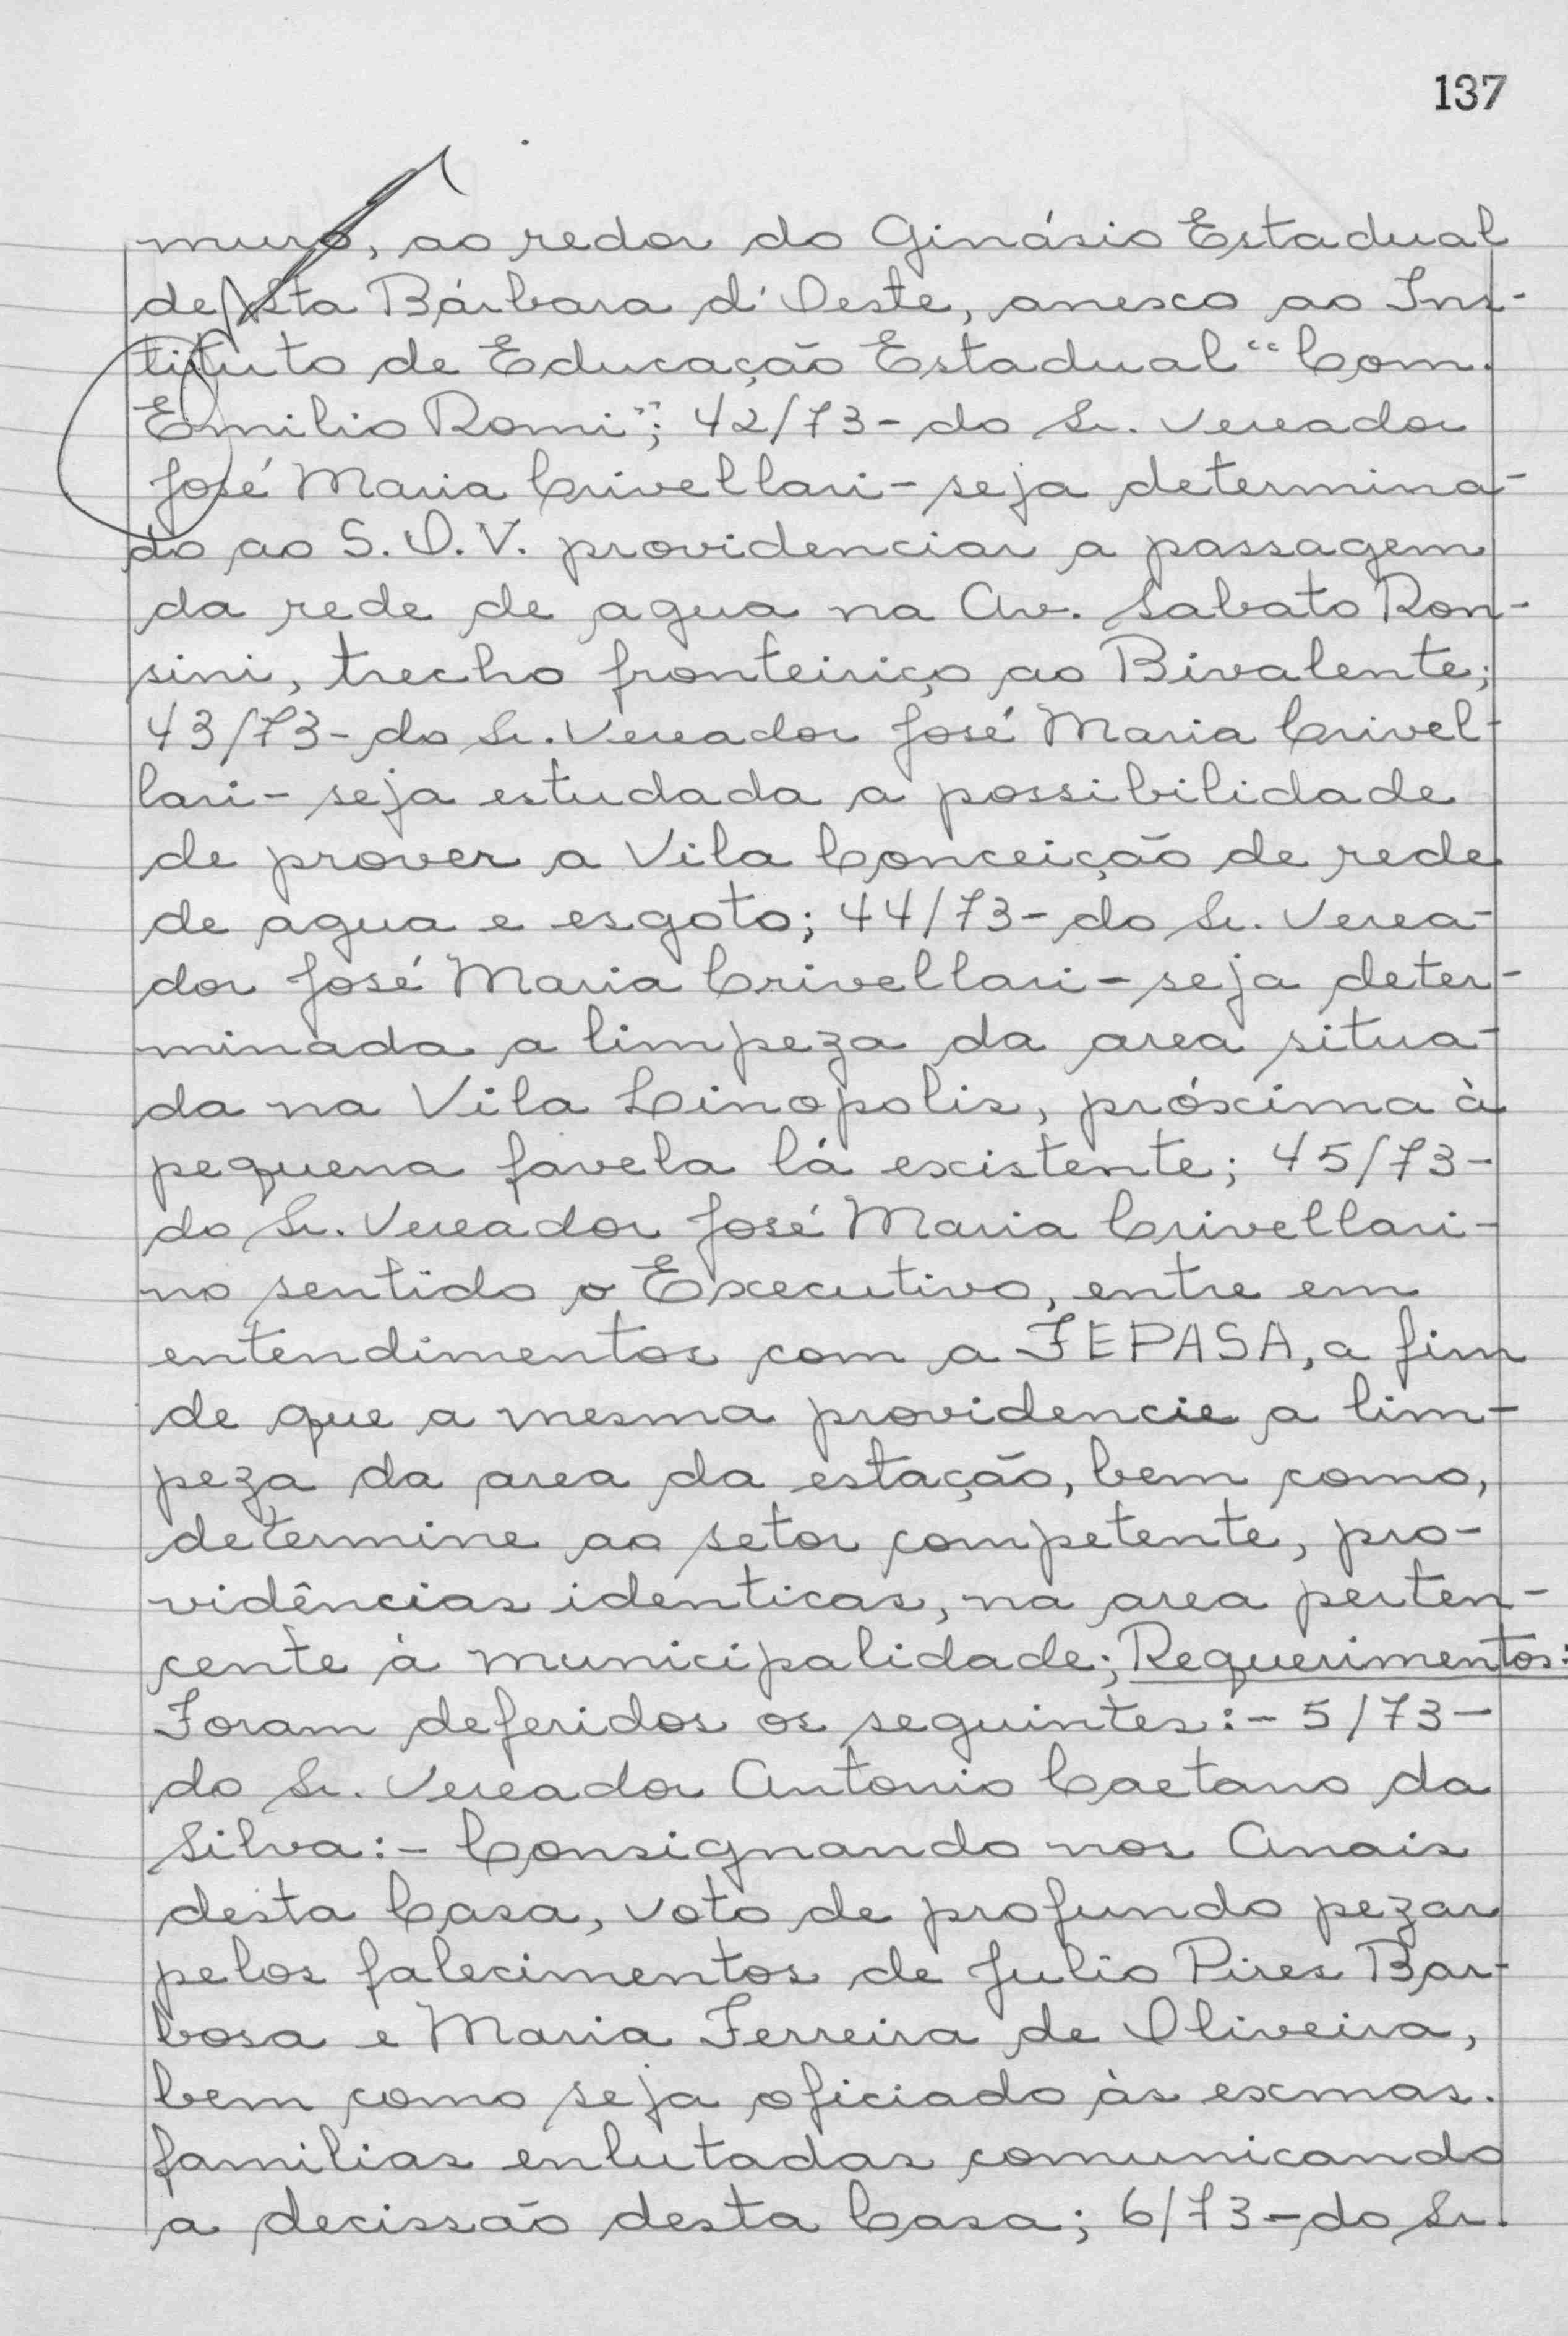 137
muro, ao redor do Ginásio Estadual
de Sta Bárbara d'Oeste, anexo ao Ins-
tituto de Educação Estadual "Com.
Emilio Romi"; 42/73- do Sr. Vereador
José Maria Crivellari - seja determina-
do ao S.O.V. providenciar a passagem
da rede de agua na Av. Sabato Ron-
sini, trecho fronteiriço ao Bivalente;
43/73- do Sr. Vereador José Maria Crivel-
lari - seja estudada a possibilidade
de prover a Vila Conceição de rede
de agua e esgoto; 44/73- do Sr. Verea-
dor José Maria Crivellari - seja deter-
minada a limpeza da area situa-
da na Vila Linopolis, próxima à
pequena favela lá existente; 45/73-
do Sr. Vereador José Maria Crivellari -
no sentido o Executivo, entre em
entendimentos com a FEPASA, a fim
de que a mesma providencie a lim-
peza da area da estação, bem como,
determine ao setor competente, pro-
vidências identicas, na area perten-
cente à municipalidade; Requerimentos:
Foram deferidos os seguintes:- 5/73-
do Sr. Vereador Antonio Caetano da
Silva:- Consignando nos Anais
desta Casa, voto de profundo pezar
pelos falecimentos de Julio Pires Bar-
bosa e Maria Ferreira de Oliveira,
bem como seja oficiado às exmas.
familias enlutadas comunicando
a decissão desta Casa; 6/73- do Sr.